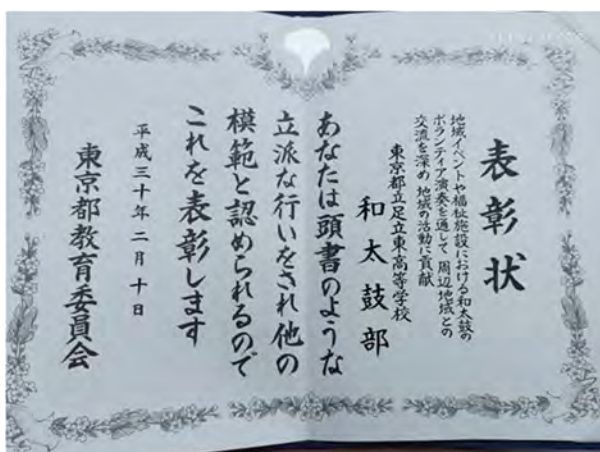 表彰状
地域イベントや福祉施設における和太鼓の
ボランティア演奏を通して周辺地域との
交流を深め地域の活動に貢献
東京都立足立東高等学校
和太鼓部
あなたは頭書のような
立派な行いをされ他の
模範と認められるので
これを表彰します
平成三十年二月十日
東京都教育委員会